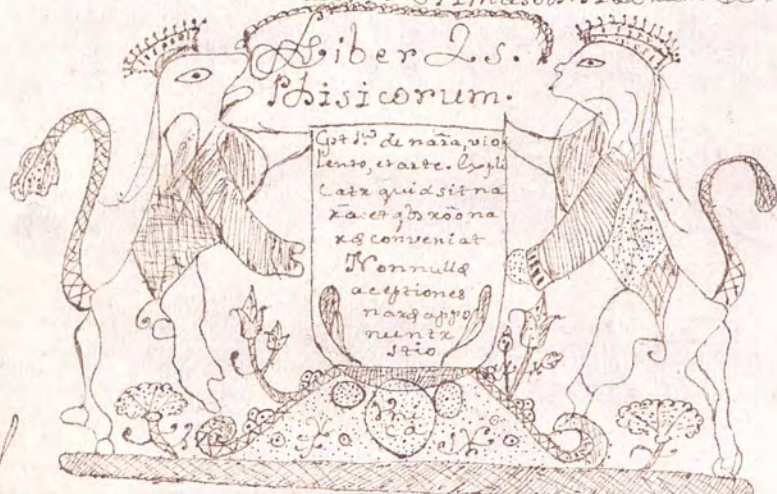 Liber 2s.
Phisicorum.
Cpt 1.ū de nar̄a, vio
lento, et arte. Expli
catr quid sit na
r̄a: et qb̄s roōna
ræ conveniat
Nonnullæ
aceptiones
naræ appo
nuntr
Vnica